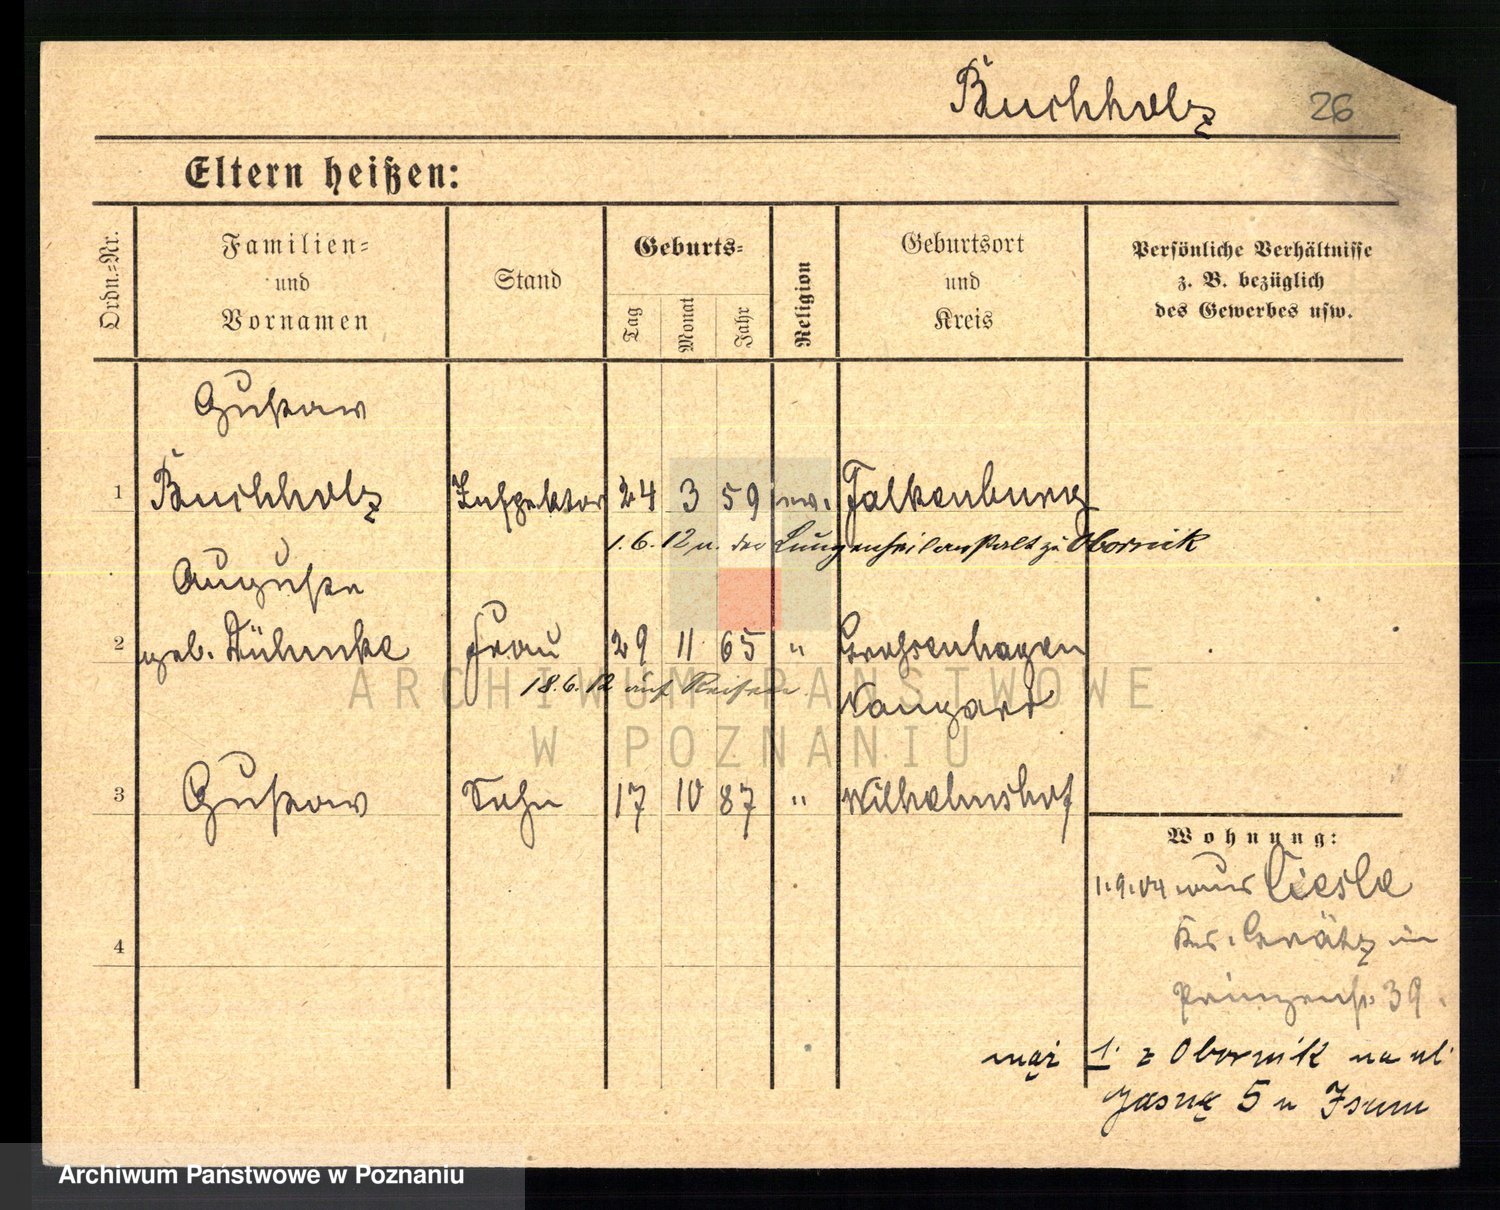 Buchholz 26
Eltern heißen:
Ordn.=Nr.
Familien=
und
Vornamen
Stand
Geburts=
Tag
Monat
Jahr
Religion
Geburtsort
und
Kreis
Persönliche Verhältnisse
z. B. bezüglich
des Gewerbes usw.
Gustav
1 Buchholz Inspektor 24 3 59 ev. Falkenburg
1.6.12 n. der Lungenheilanstalt zu Obornik
Auguste
2 geb. Dühmke Frau 29 11 65 " Grossenhagen
18.6.12 auf Reisen
Naugard
3 Gustav Sohn 17 10 87 " Wilhelmshof
Wohnung:
1.9.04 aus Ciesle
Krs. Grätz in
Prinzenstr. 39.
4
mąż 1. z Obornik na ul
Jasną 5 u Isum
ARCHIWUM PAŃSTWOWE
W POZNANIU
Archiwum Państwowe w Poznaniu